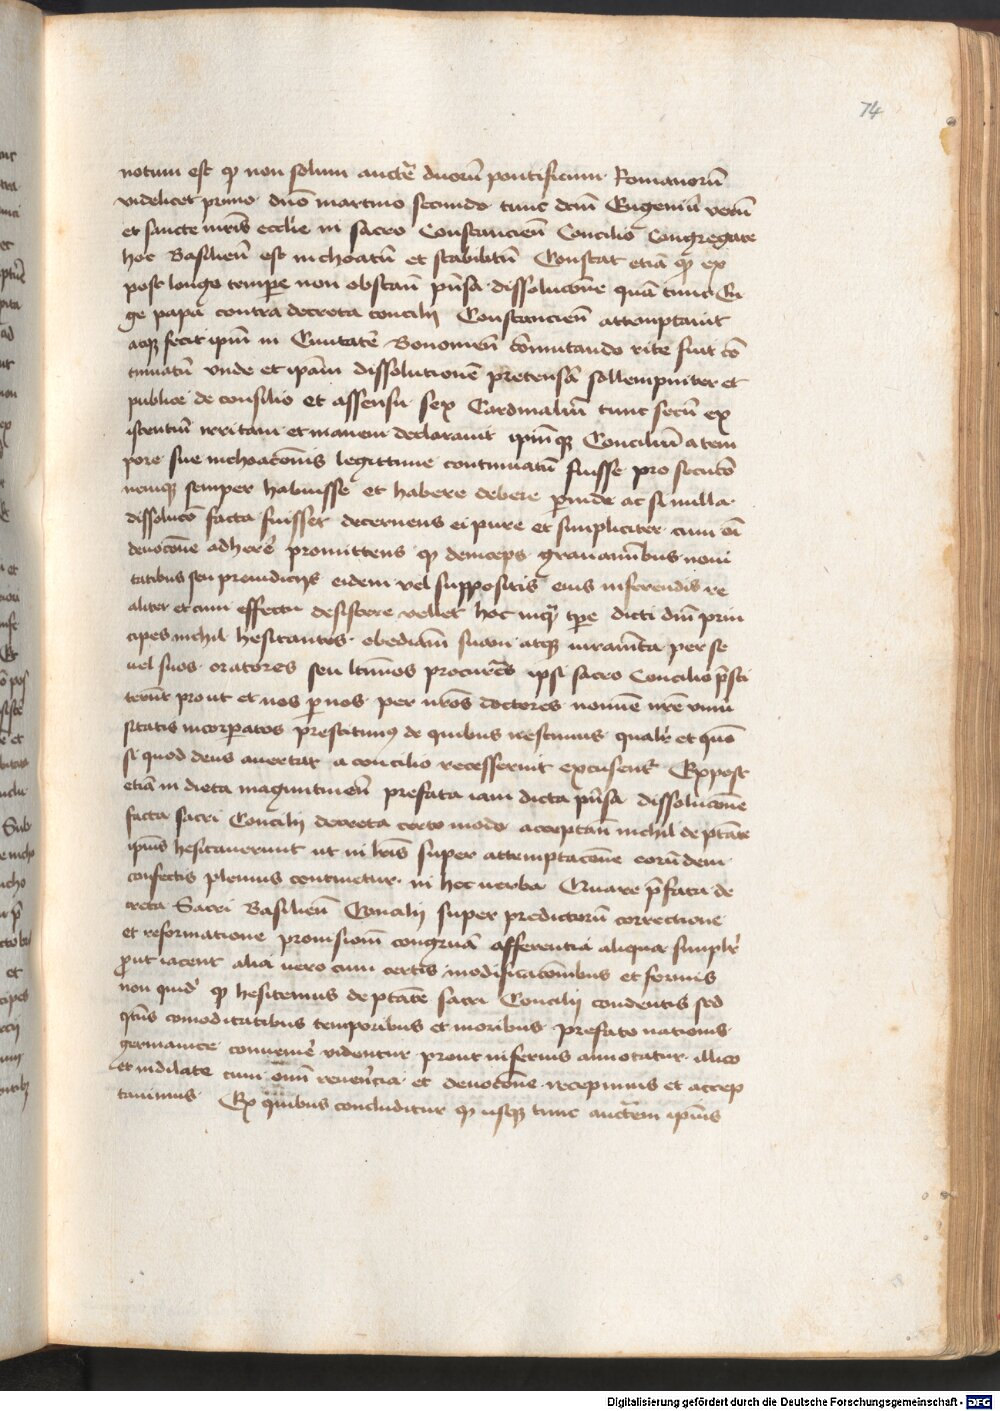 74
notum est ꝙ non solum auctē duorū pontificum Romanorū
videlicet primo dño martino secundo tunc dcim Eugeniū verū
et sancte m̄ris eccl̄ie in sacro Constancien̄ Concilio Congregate
hoc Basilien̄ est inchoatū et stabilitū Constat etiā ꝙ ex
post longo tempore non obstan̄ p̄nsa dissolucōne quā tunc Eu
ge papa contra decreta concilij Constancien̄ attemptauit
atqꝫ fecit ip̄m in Ciuitatē Bononien̄ cōmutando rite fuit cō
tinuatū vnde et ip̄am dissolutionē pretensā sollempniter et
publice de consilio et assensu sex Cardinaliū tunc secū ex
istentiū irritam et inanem declarauit ip̄mqꝫ Conciliū a tem
pore sue inchoacōnis legittime continuatū fuisse pro secucō
nemqꝫ semper habuisse et habere debere perinde ac si nulla
dissolucō facta fuisset decernens ei pure et simpliciter cum oī
deuocōne adherē promittens ꝙ deinceps grauaminibus noui
tatibus seu preiudicijs eidem vel suppositis eius inferendis re
aliter et cum effectu desistere vellet hoc inqꝫ tpe dicti dn̄i prin
cipes nichil hesitantes obediām suam atqꝫ iuramēta per se
uel suos oratores seu ltimos procurēs ipsi sacro Concilio p̄sti
terūt prout et nos per nos per nr̄os doctores nomine nr̄e vniu
sitatis incorporatos prestitimꝰ de quibus nescimus qualr̄ et quō
si quod deus auertat a concilio recesserint excusent̄ Expost
etiā in dieta maguntinen̄ prefata iam dicta p̄nsa dissolucōne
facta sacri Concilij decreta certo modo acceptan̄ nichil de ptāte
ipius hesitauerunt ut in lr̄is super attemptacōne eorūdem
confectis plenius continetur in hec uerba Quare p̄fata de
creta Sacri Basilien̄ Concilij super predictorū correctione
et reformatione prouisionē congruā afferentia aliqua simplr̄
prout iacent alia uero cum certis modificacōnibus et formis
non quid ꝙ hesitemus de ptāte sacri Concilij condentis sed
qtūs comoditatibus temporibus et moribus prefate nationis
germanice conuenire videntur prout inferius annotatur illico
et indilate cum om̄i reuerēcia et deuocōne recepimus et accep
tauimus Ex quibus concluditur ꝙ usqꝫ tunc auctēm ipius
Digitalisierung gefördert durch die Deutsche Forschungsgemeinschaft - DFG